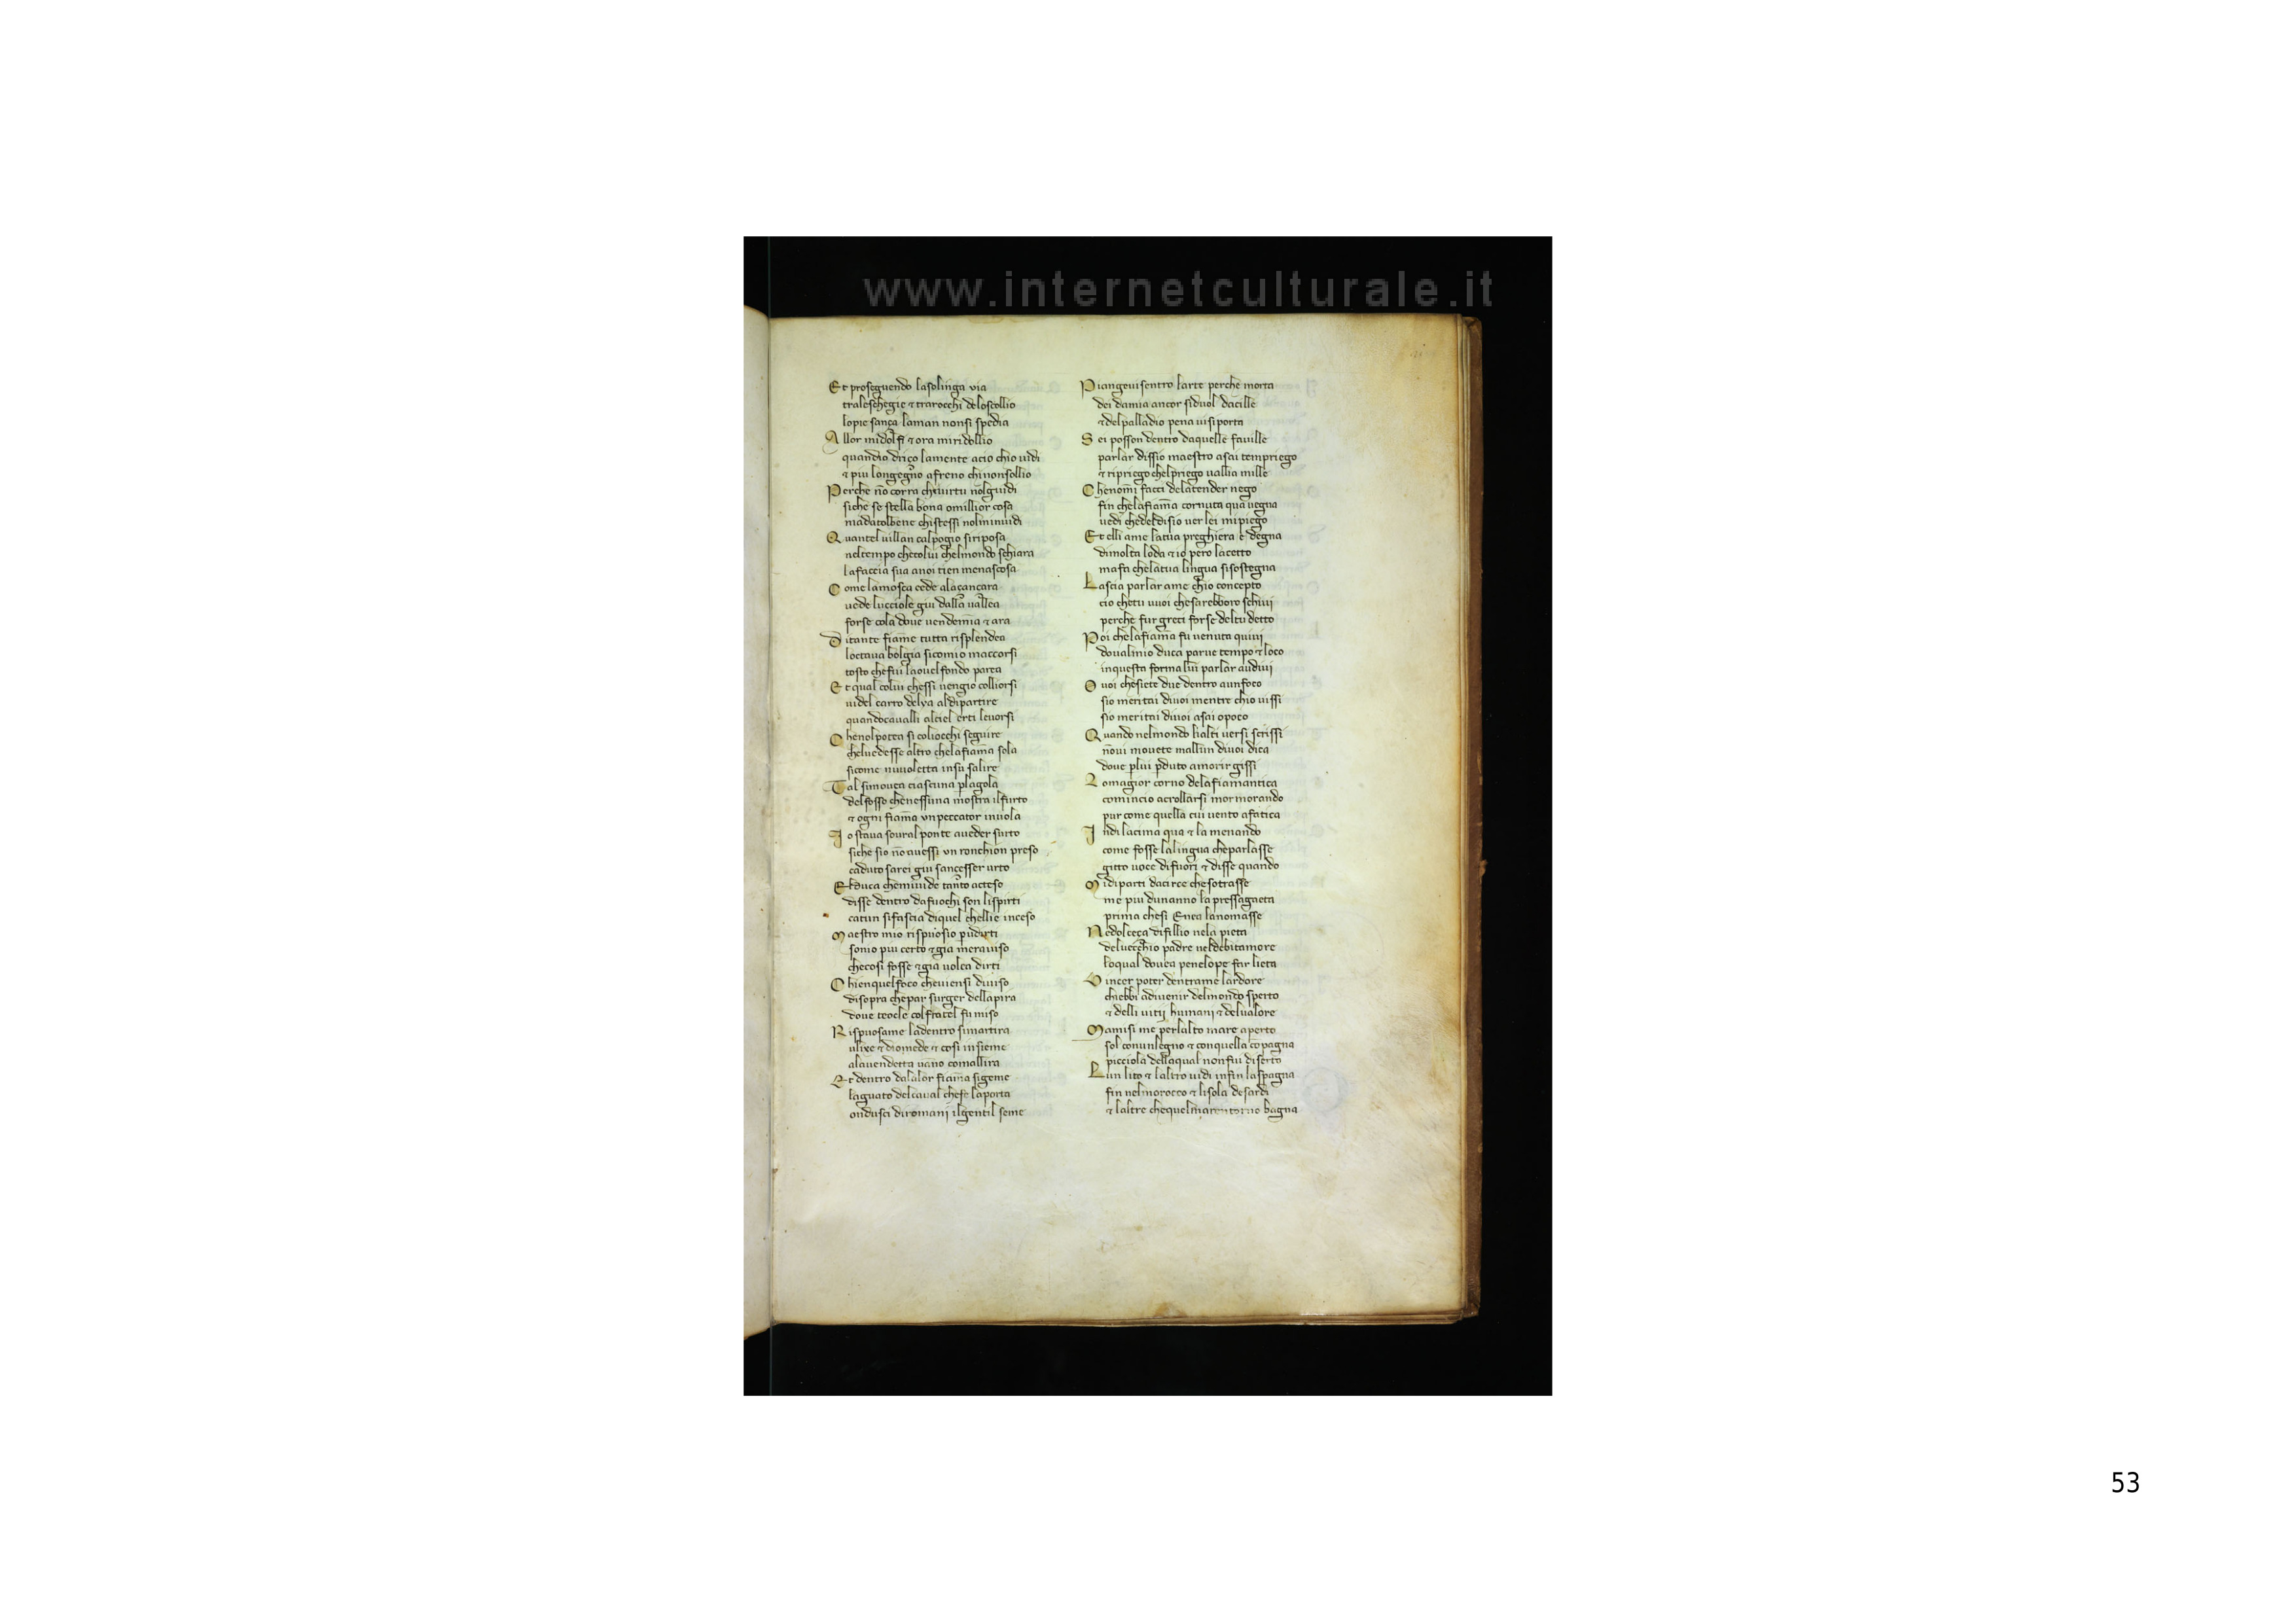 www.internetculturale.it
Et proseguendo lasolinga via
traleschegie & trarocchi deloscollio
lopie sança laman nonsi spedia
Allor midolsi & ora miridollio
quandio driço lamente acio chio uidi
& piu longegno afreno chinonsollio
Perche nō corra cheuirtu nolguidi
siche se stella bona omillior cosa
madatolbene chistessi nolminuidi
Quantel uillan calpogio siriposa
neltempo checolui chelmondo schiara
lafaccia sua anoi tien menascosa
Come lamosca cede alaçançara
uede lucciole giu dalla uallea
forse cola doue uendemia & ara
Ditante fiame tutta risplendea
loctaua bolgia sicomio maccorsi
tosto chefui laouelfondo parea
Et qual colui chessi uengio colliorsi
uidel carro delya aldipartire
quandocaualli alciel erti leuorsi
Chenolpotea si coliocchi seguire
cheluedesse altro chelafiama sola
sicome nuuoletta insu salire
Tal simouea ciascuna plagola
delfosso chenessuna mostra ilfurto
& ogni fiama unpeccator inuola
Io staua soural ponte aueder surto
siche sio nō auessi un ronchion preso
caduto sarei giu sancesser urto
Elduca chemiuide tanto acteso
disse dentro dafuochi son lispirti
catun sifascia diquel chellie inceso
Maestro mio rispuosio pudirti
sonio piu certo & gia merauiso
checosi fosse & gia uolea dirti
Chienquelfoco cheuiensi diuiso
disopra chepar surger dellapira
doue teocle colfratel fu miso
Rispuosame ladentro simartira
ulixe & diomede & cosi insieme
alauendetta uāno comallira
Et dentro dalalor fiama sigeme
laguato delcaual chefe laporta
ondusci diromani ilgentil seme
Piangeuisentro larte perche morta
deidamia ancor siduol dacille
& delpalladio pena uisiporta
Sei posson dentro daquelle fauille
parlar dissio maestro asai tempriego
& ripriego chelpriego uallia mille
Chenomi facci delatender nego
fin chelafiama cornuta qua uegna
uedi chedeldisio uer lei mipiego
Et elli ame latua preghiera e degna
dimolta loda & io pero lacetto
mafa chelatua lingua sisostegna
Lascia parlar ame chio concepto
cio chetu uuoi chesarebboro schiui
perche fur greci forse deltu detto
Poi chelafiama fu uenuta quiui
doualmio duca parue tempo & loco
inquesta forma lui parlar audiui
O uoi chesiete due dentro aunfoco
sio meritai diuoi mentre chio uissi
sio meritai diuoi asai opoco
Quando nelmondo lialti uersi scrissi
nōui mouete mallun diuoi dica
doue plui pduto amorir gissi
Lomagior corno delafiamantica
comincio acrollarsi mormorando
pur come quella cui uento afatica
Indi lacima qua & la menando
come fosse lalingua cheparlasse
gitto uoce difuori & disse quando
Midiparti dacirce chesotrasse
me piu dunanno la pressagaeta
prima chesi Enea lanomasse
Nedolceça difillio nela pieta
deluecchio padre neldebitamore
loqual douea penelope far lieta
Vincer poter dentrame lardore
chiebbi adiuenir delmondo sperto
& delli uitij humani & deluałore
Mamisi me perlalto mare aperto
sol conunlegno & conquella copagna
picciola dellaqual nonfui diserto
Lun lito & laltro uidi infin laspagna
fin nelmorocco & lisola desardi
& laltre chequelmarentorno bagna
53